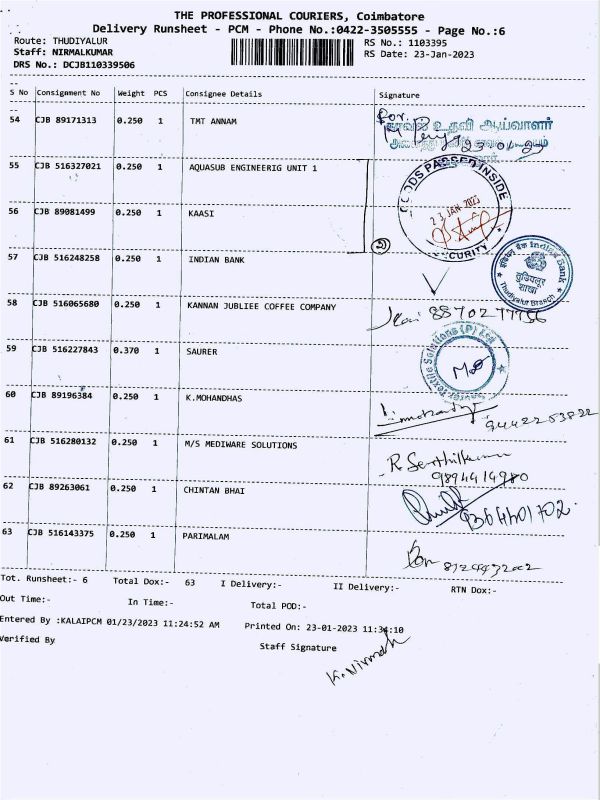 THE PROFESSIONAL COURIERS, Coimbatore
Delivery Runsheet - PCM - Phone No.:0422-3505555 - Page No.:6
Route: THUDIYALUR
RS No.: 1103395
Staff: NIRMALKUMAR
RS Date: 23-Jan-2023
DRS No.: DCJB110339506
S No Consignment No Weight PCS Consignee Details Signature
54 CJB 89171313 0.250 1 TMT ANNAM
For.
உதவி ஆய்வாளர்
23/01/23
55 CJB 516327021 0.250 1 AQUASUB ENGINEERIG UNIT 1
GOODS PASSED INSIDE
23 JAN 2023
SECURITY
56 CJB 89081499 0.250 1 KAASI
57 CJB 516248258 0.250 1 INDIAN BANK
इंडियन बैंक Indian Bank
तुडियलूर
शाखा
Thudiyalur Branch
58 CJB 516065680 0.250 1 KANNAN JUBLIEE COFFEE COMPANY
8870277756
59 CJB 516227843 0.370 1 SAURER
Saurer Textile Solutions (P) Ltd
60 CJB 89196384 0.250 1 K.MOHANDHAS
9442253822
61 CJB 516280132 0.250 1 M/S MEDIWARE SOLUTIONS
R. Senthilkumar
9894414980
62 CJB 89263061 0.250 1 CHINTAN BHAI
63 CJB 516143375 0.250 1 PARIMALAM
Tot. Runsheet:- 6 Total Dox:- 63 I Delivery:- II Delivery:- RTN Dox:-
Out Time:- In Time:- Total POD:-
Entered By :KALAIPCM 01/23/2023 11:24:52 AM Printed On: 23-01-2023 11:34:10
Verified By Staff Signature
K. Nirmal